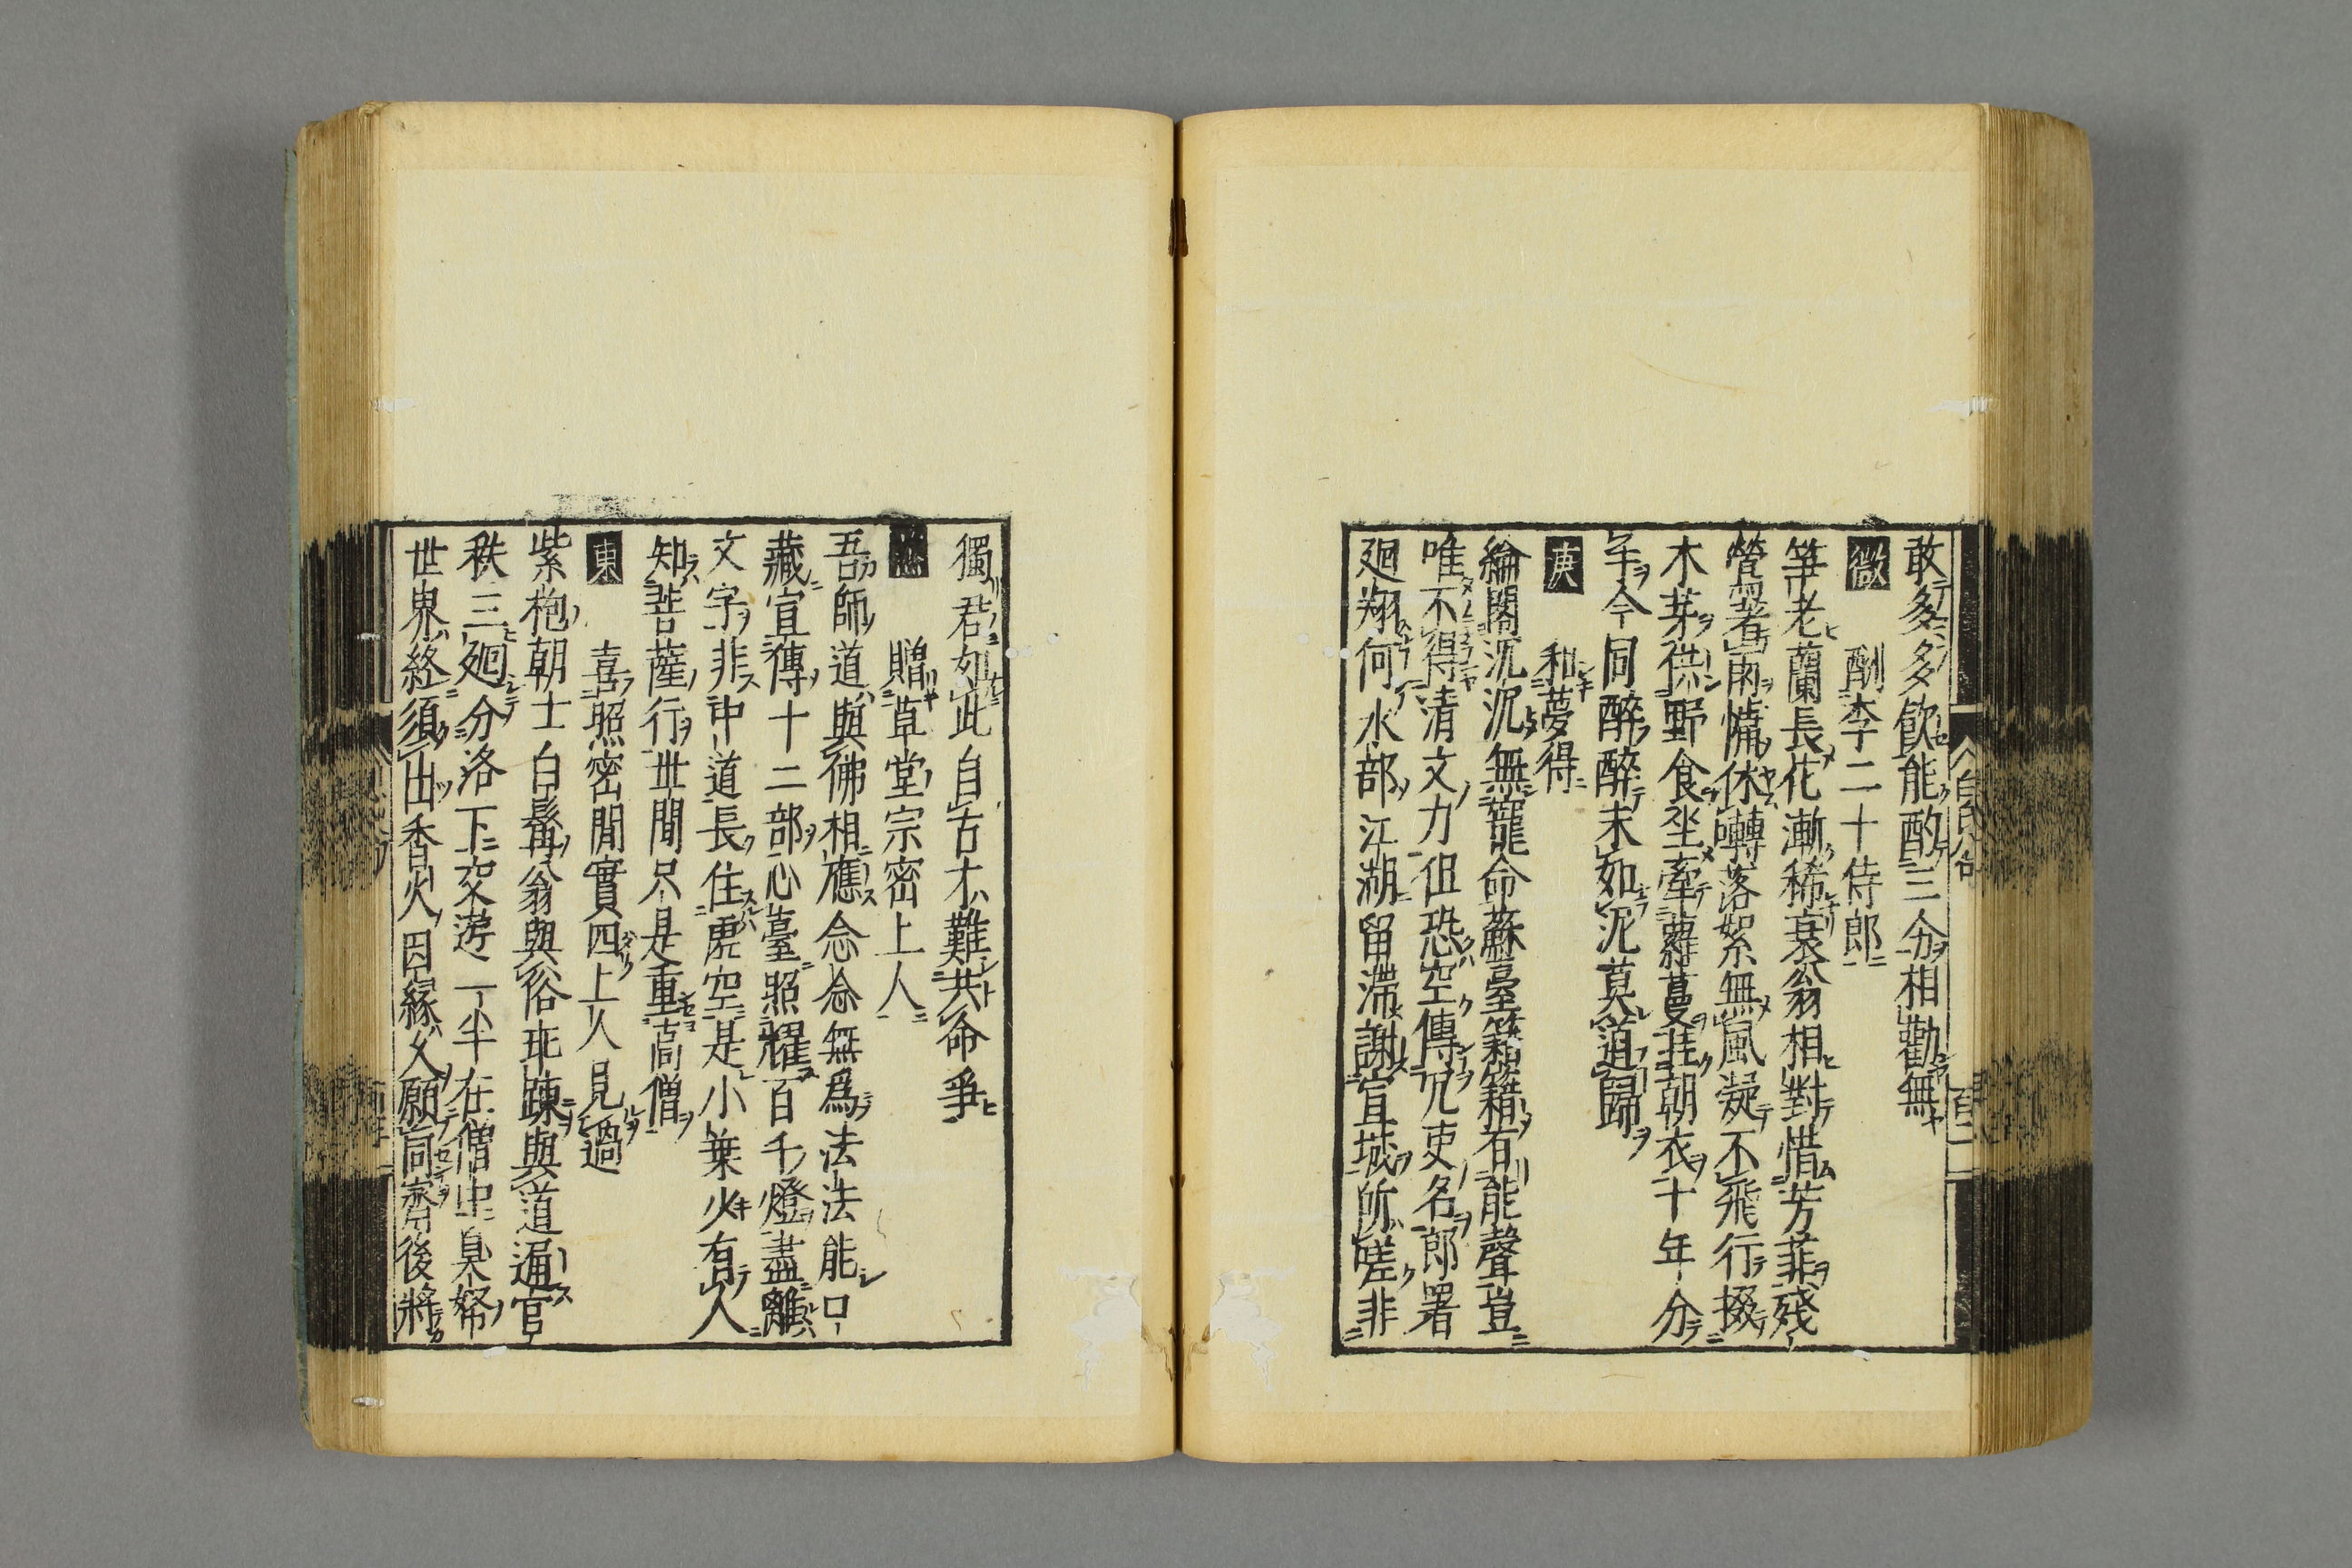 敢多多飲能酌三分相勸無
微　酬李二十侍郎
笋老蘭長花漸稀衰翁相對惜芳菲殘
鶯著雨慵休囀落絮無風凝不飛行掇
木芽供野食坐牽蘿蔓挂朝衣十年分
手今同醉醉未如泥莫道歸
庚　和夢得
綸閣沉沉無寵命蘇臺籍籍有能聲豈
唯不得清文力但恐空傳冗吏名郎署
廻翔何水部江湖留滯謝宣城所嗟非
獨君如此自古才難共命爭
贈草堂宗密上人
吾師道與佛相應念念無爲法法能口
藏宣傳十二部心臺照耀百千燈盡離
文字非中道長住虛空是小乗少有人
知菩薩行世間只是重高僧
東　喜照密閒實四上人見過
紫袍朝士白髯翁與俗乖踈與道通官
秩三廻分洛下交遊一半在僧中臭帑
世界終須出香火因緣久願同齋後將